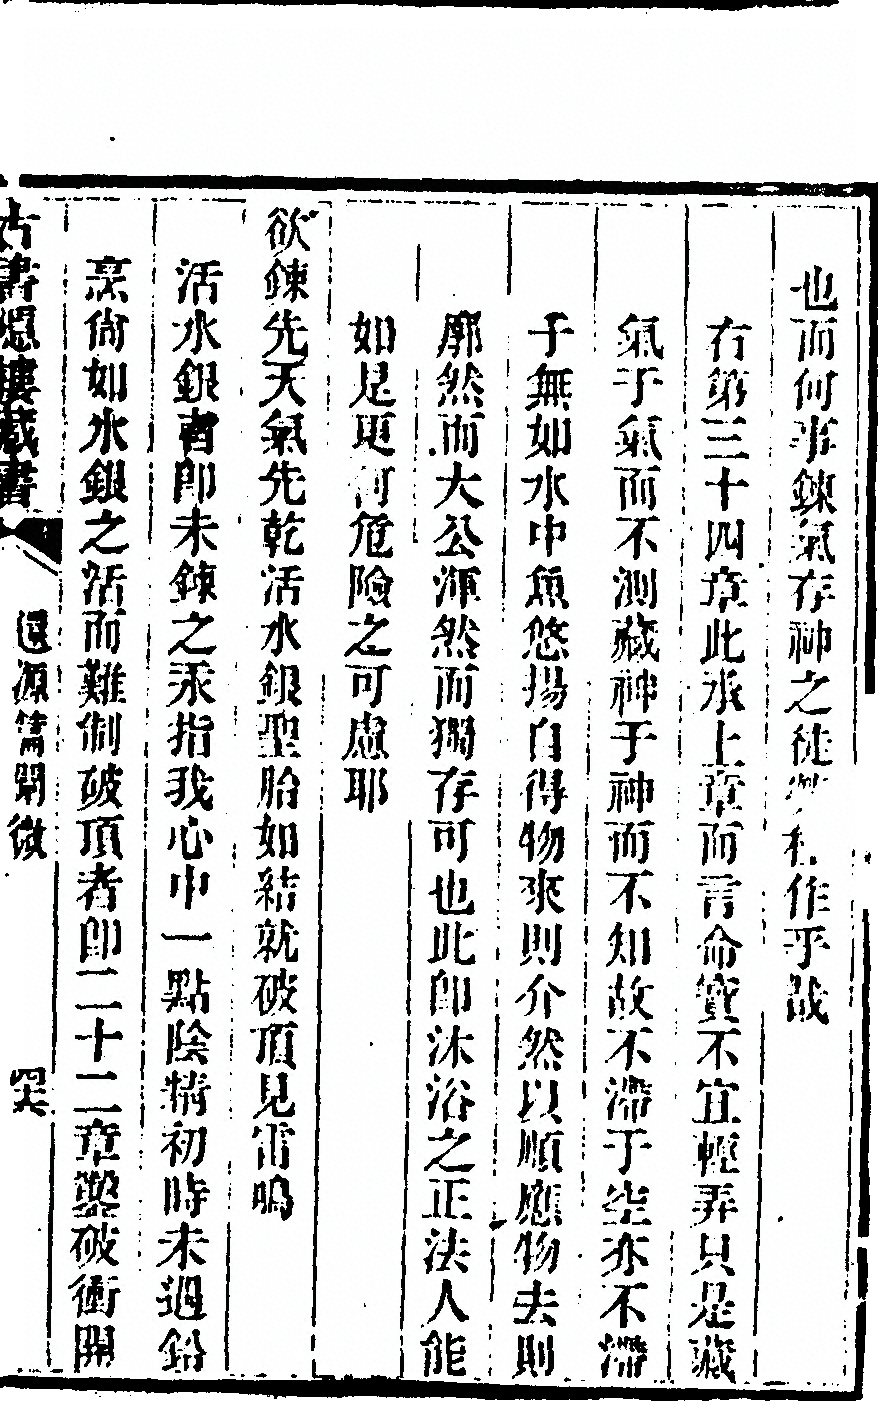 也而何事鍊氣存神之徒勞私作乎哉
右第三十四章此承上章而言命寶不宜輕弄只是藏
氣于氣而不測藏神于神而不知故不滯于空亦不滯
于無如水中魚悠揚自得物來則介然以順應物去則
廓然而大公渾然而獨存可也此卽沐浴之正法人能
如是更何危險之可慮耶
欲鍊先天氣先乾活水銀聖胎如結就破頂見雷鳴
活水銀者卽未鍊之汞指我心中一點陰精初時未過鉛
烹尙如水銀之活而難制破頂者卽二十二章鑿破衝開
古書隱樓藏書
還源篇闡微
四六